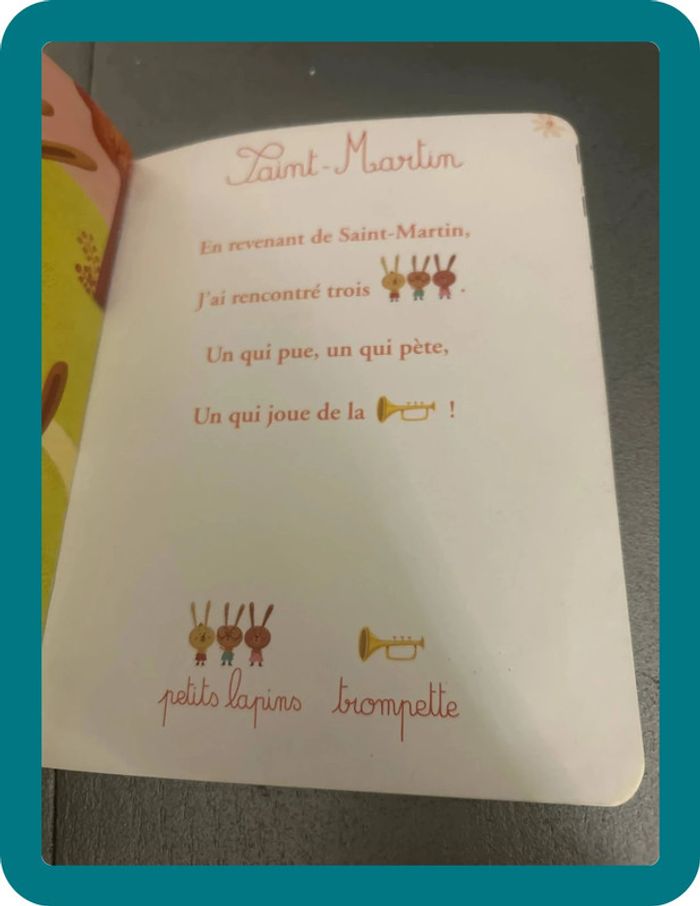 Saint-Martin
En revenant de Saint-Martin,
J'ai rencontré trois .
Un qui pue, un qui pète,
Un qui joue de la !
petits lapins trompette